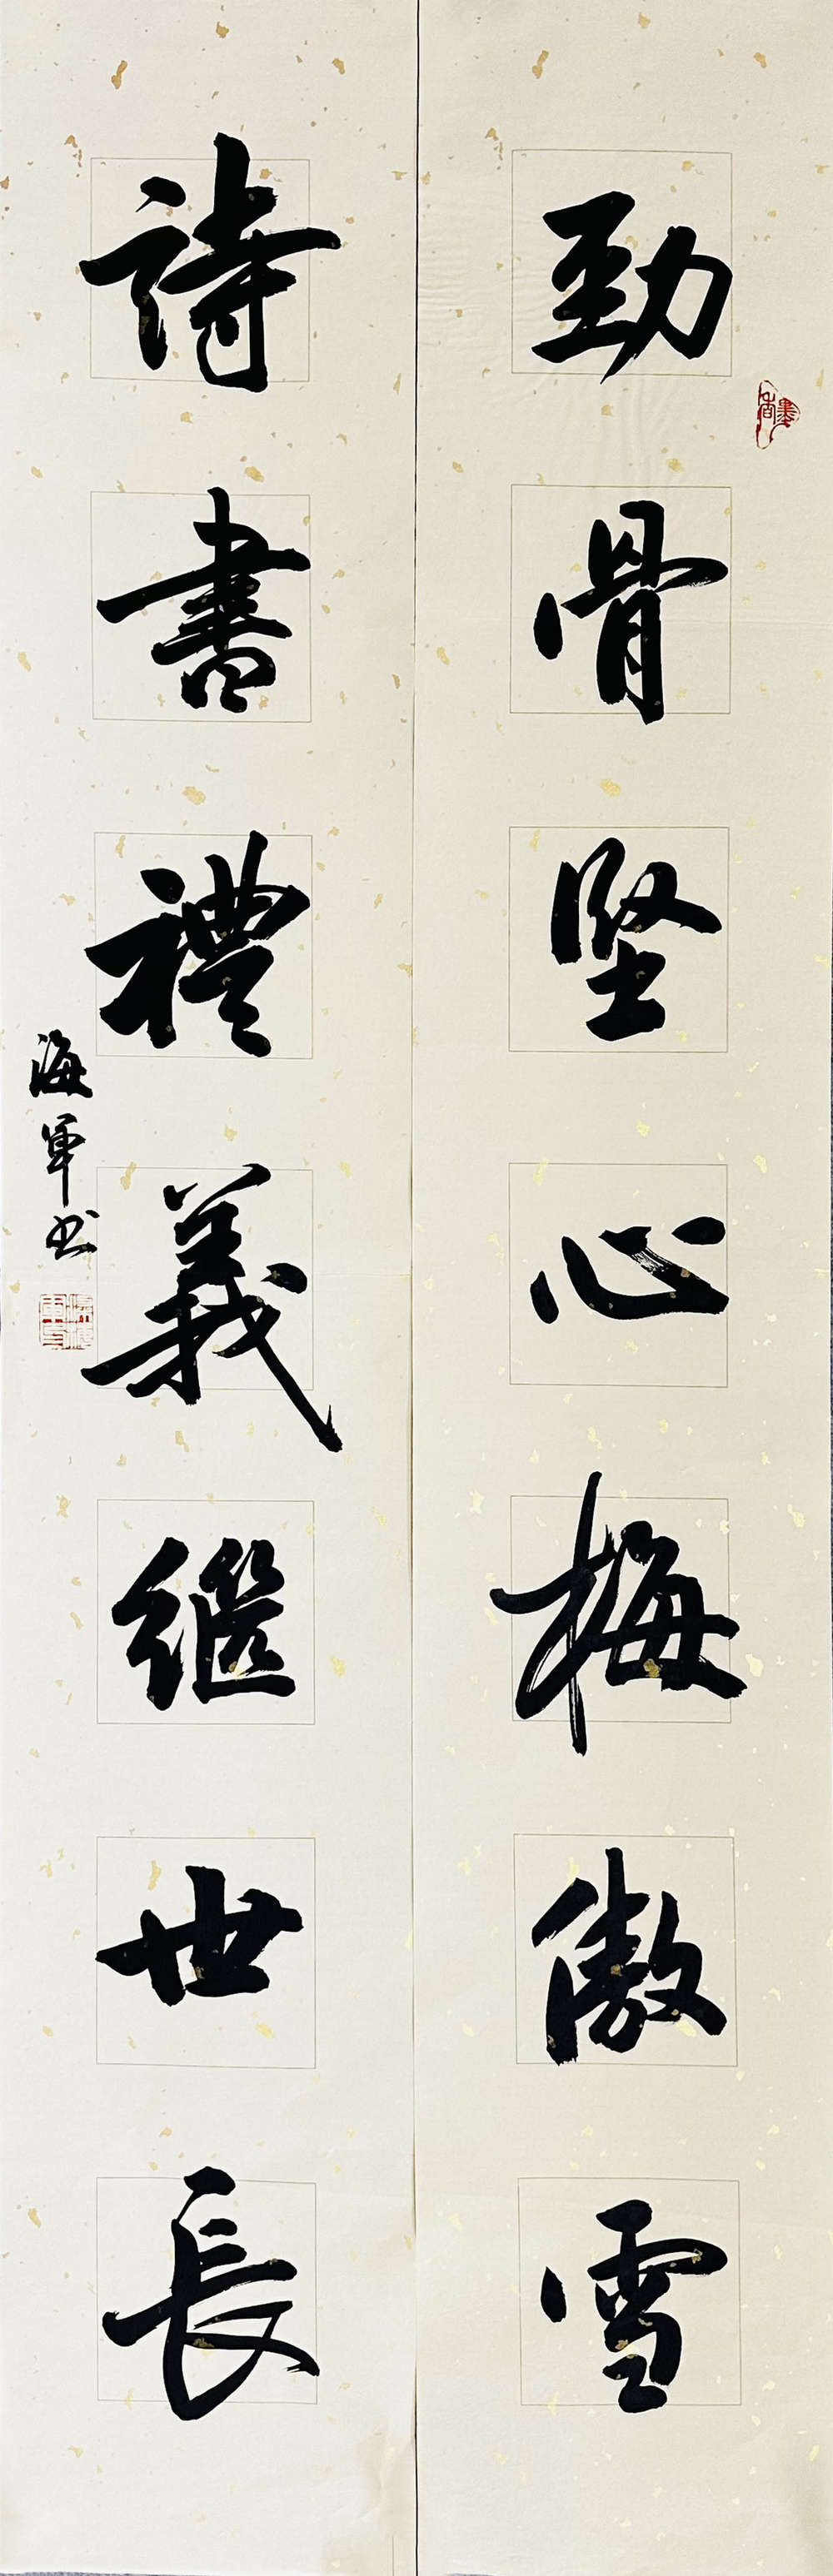 勁骨堅心梅傲雪
墨香
詩書禮義繼世長
海軍书